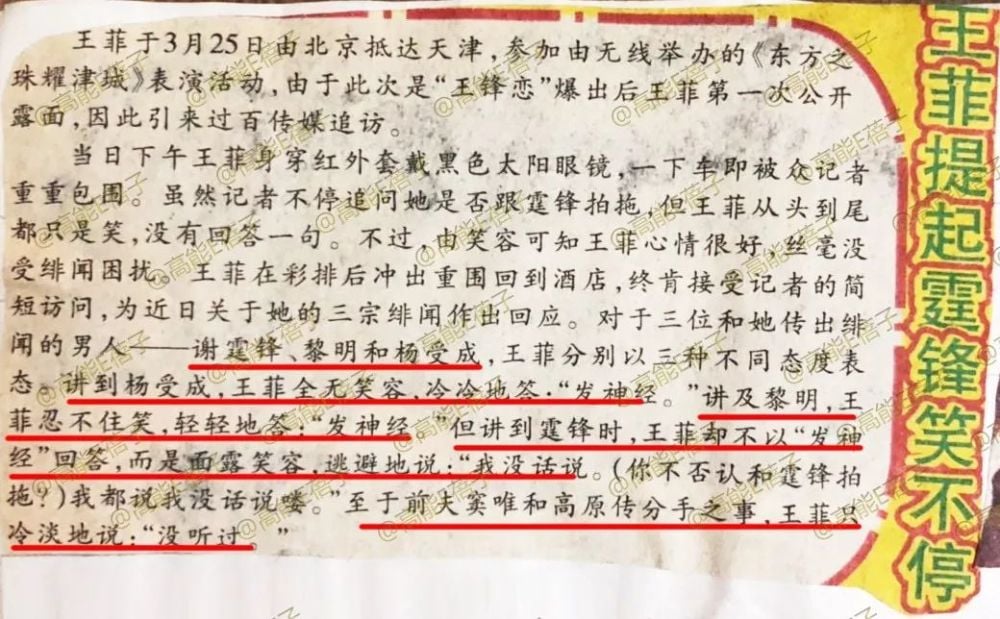 王菲于3月25日由北京抵达天津，参加由无线举办的《东方之
珠耀津城》表演活动，由于此次是“王锋恋”爆出后王菲第一次公开
露面，因此引来过百传媒追访。
当日下午王菲身穿红外套戴黑色太阳眼镜，一下车即被众记者
重重包围。虽然记者不停追问她是否跟霆锋拍拖，但王菲从头到尾
都只是笑，没有回答一句。不过，由笑容可知王菲心情很好，丝毫没
受绯闻困扰。 王菲在彩排后冲出重围回到酒店，终肯接受记者的简
短访问，为近日关于她的三宗绯闻作出回应。对于三位和她传出绯
闻的男人——谢霆锋、黎明和杨受成，王菲分别以三种不同态度表
态。讲到杨受成，王菲全无笑容，冷冷地答：“发神经。”讲及黎明，王
菲忍不住笑，轻轻地答：“发神经。”但讲到霆锋时，王菲却不以“发神
经”回答，而是面露笑容，逃避地说：“我没话说。（你不否认和霆锋拍
拖？）我都说我没话说喽。”至于前夫窦唯和高原传分手之事，王菲只
冷淡地说：“没听过。”
王菲提起霆锋笑不停
@高能E蓓子